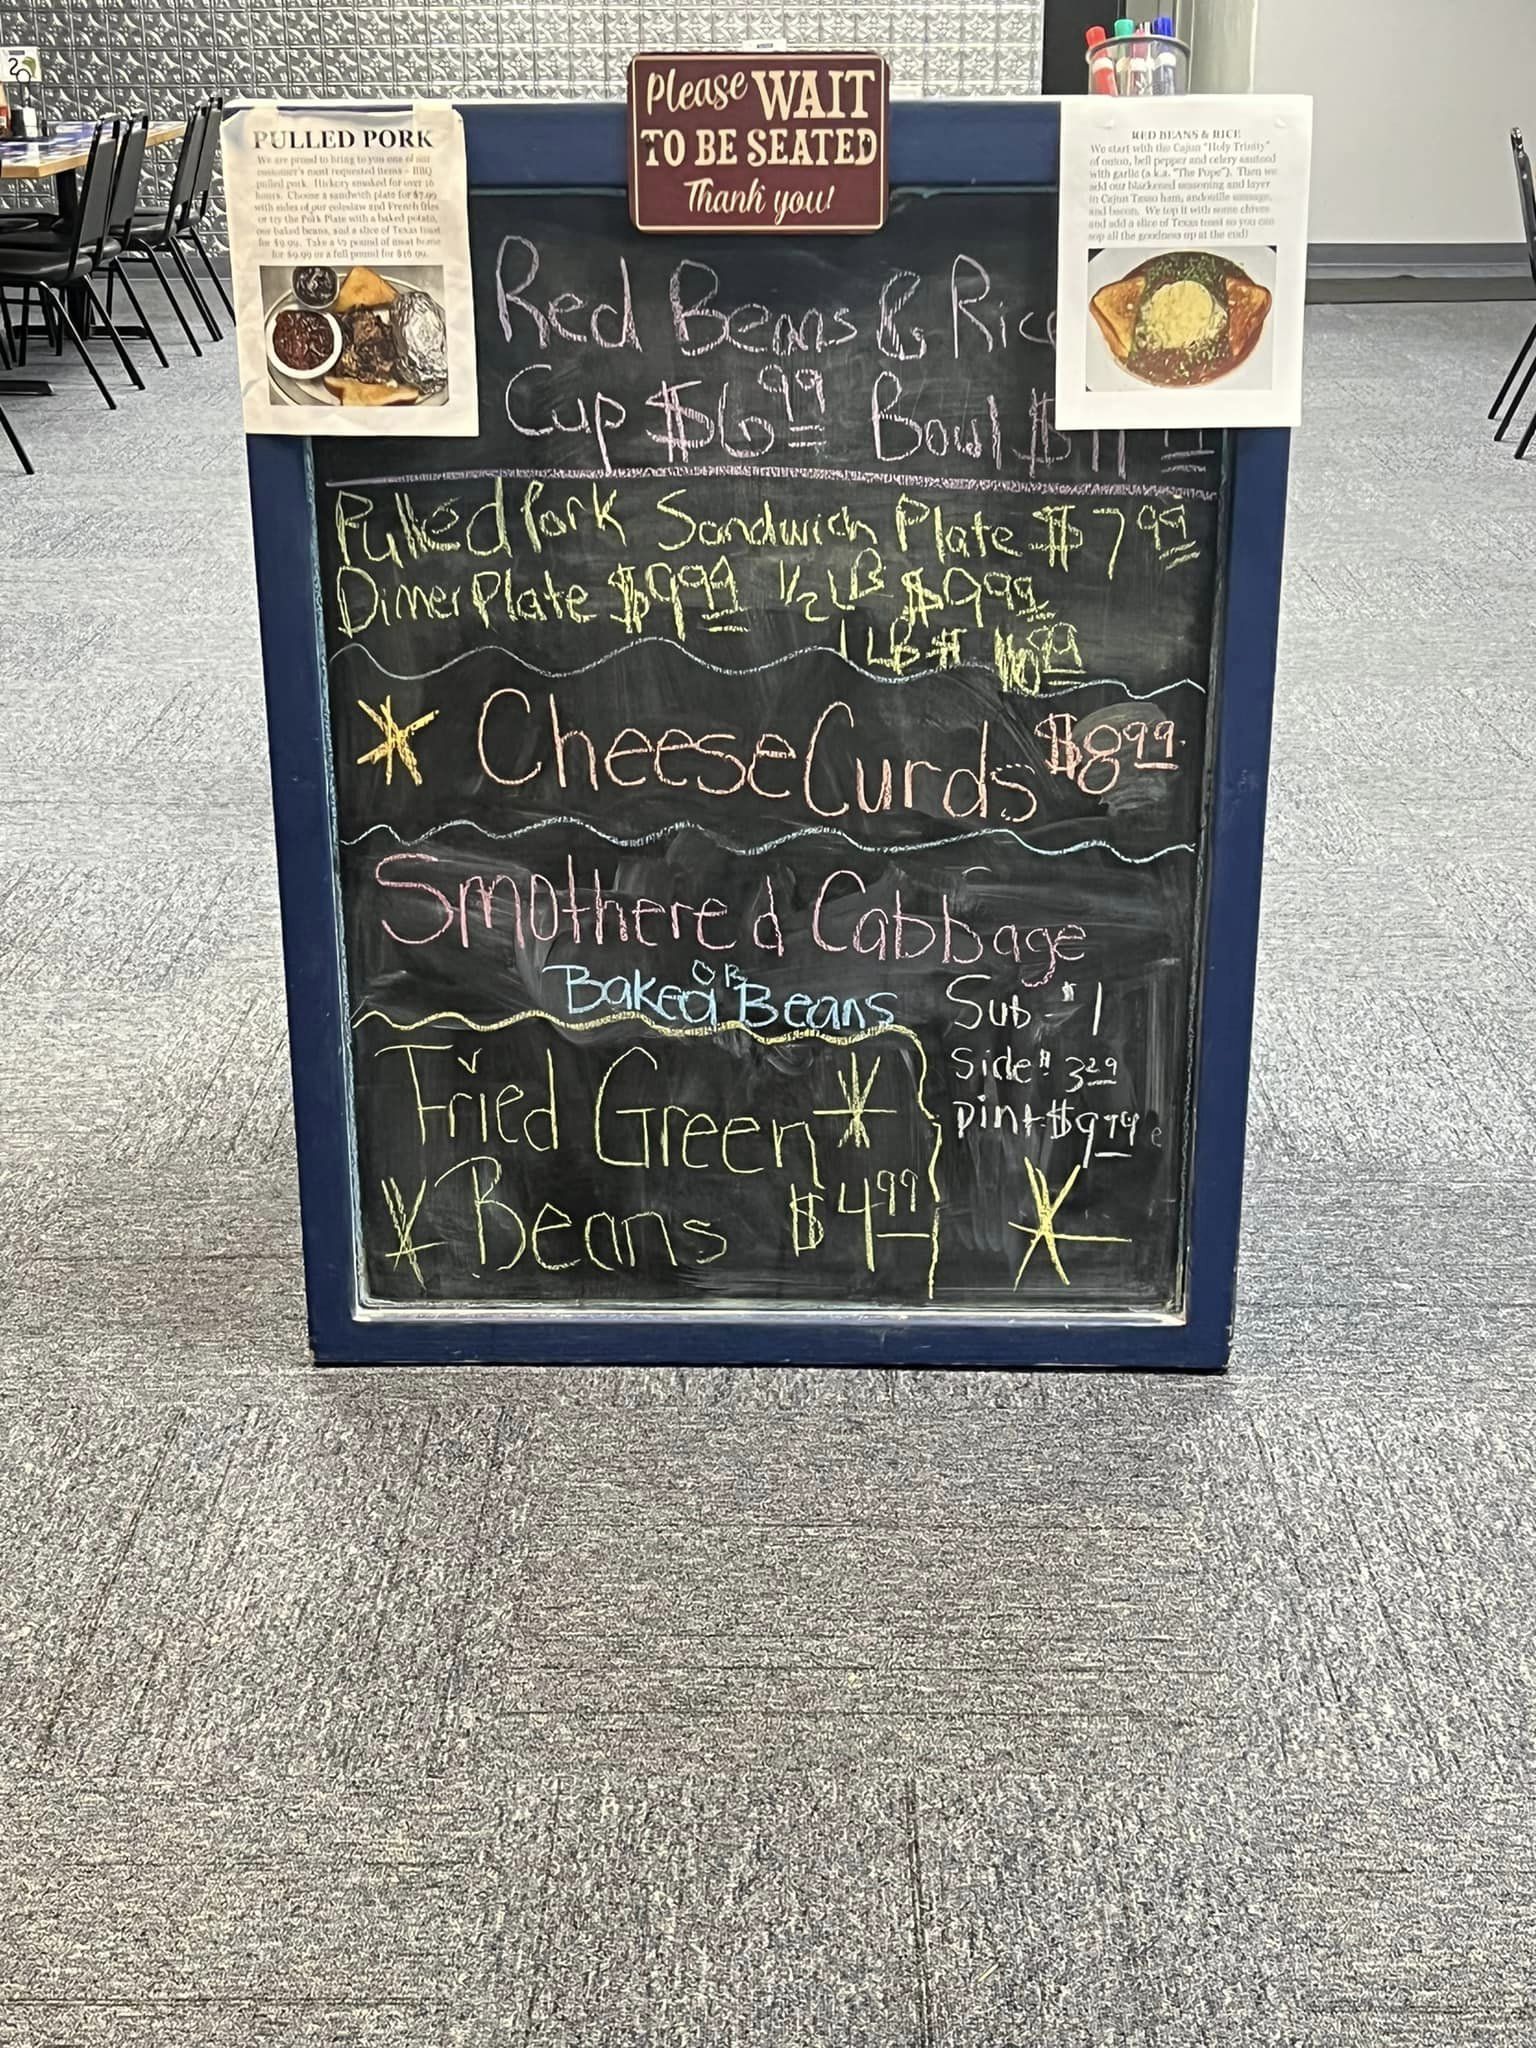 Please WAIT
TO BE SEATED
Thank you!
PULLED PORK
We are proud to bring to you one of our
customer's most requested items – BBQ
pulled pork. Hickory smoked for over 16
hours. Choose a sandwich plate for $7.99
with sides of our coleslaw and French fries
or try the Pork Plate with a baked potato,
our baked beans, and a slice of Texas toast
for $9.99. Take a ½ pound of meat home
for $9.99 or a full pound for $16.99.
RED BEANS & RICE
We start with the Cajun "Holy Trinity"
of onion, bell pepper and celery sauteed
with garlic (a.k.a. "The Pope"). Then we
add our blackened seasoning and layer
in Cajun Tasso ham, andouille sausage,
and bacon. We top it with some chives
and add a slice of Texas toast so you can
sop all the goodness up at the end)
Red Beans & Rice
Cup $6.99 Bowl $11
Pulled Pork Sandwich Plate $7.99
Dinner Plate $9.99 1/2 LB $9.99
1 LB $16.99
Cheese Curds $8.99
Smothered Cabbage
OR
Baked Beans
Sub - $1
Side $3.29
pint $9.99
Fried Green
Beans $4.99